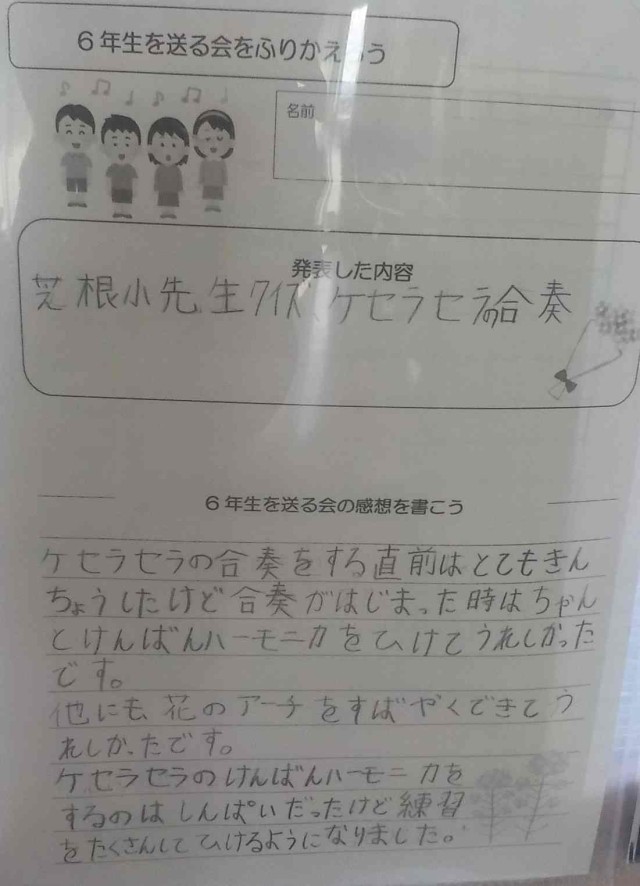 6年生を送る会をふりかえろう
名前
発表した内容
芝根小先生クイズ、ケセラセラの合奏
6年生を送る会の感想を書こう
ケセラセラの合奏をする直前はとてもきん
ちょうしたけど合奏がはじまった時はちゃん
とけんばんハーモニカをひけてうれしかった
です。
他にも花のアーチをすばやくできてう
れしかったです。
ケセラセラのけんばんハーモニカを
するのはしんぱいだったけど練習
をたくさんしてひけるようになりました。